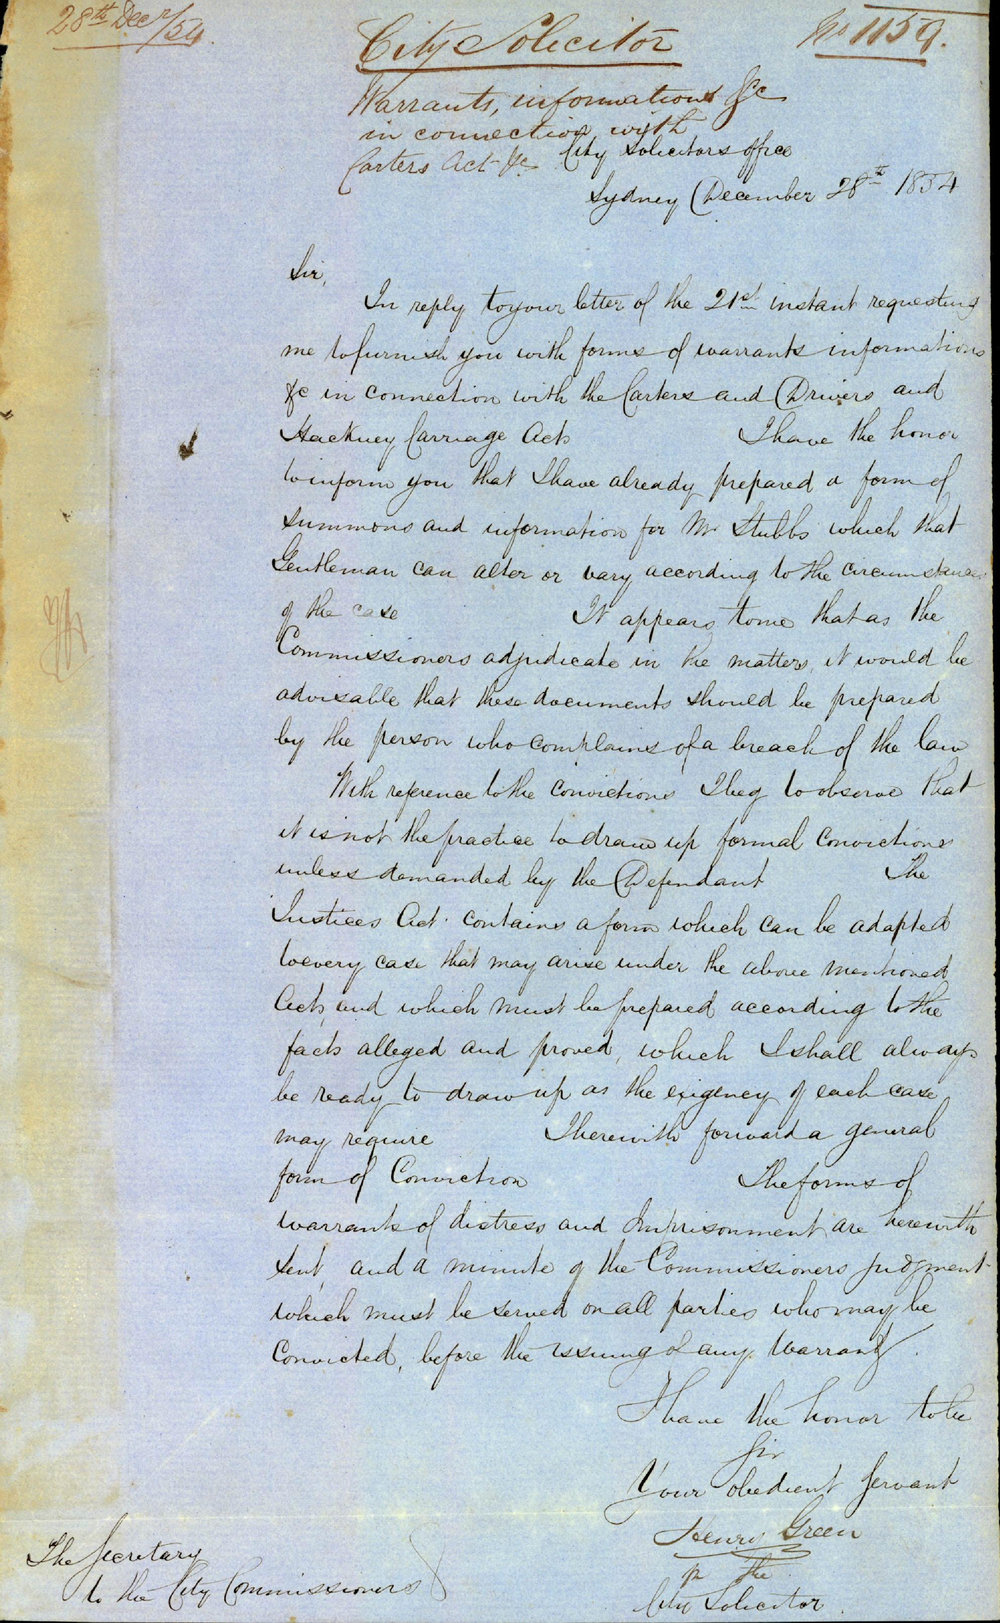 28th Decr/54
City Solicitor
No 1159.
Warrants, informations &c
in connection with
Carters Act &c
City Solicitors office
Sydney December 28th 1854
Sir,
In reply to your letter of the 21st instant requesting
me to furnish you with forms of warrants informations
&c in connection with the Carters and Drivers and
Hackney Carriage Acts I have the honor
to inform you that I have already prepared a form of
summons and information for Mr Stubbs which that
Gentleman can alter or vary according to the circumstances
of the case It appears to me that as the
Commissioners adjudicate in the matters, it would be
advisable that these documents should be prepared
by the person who complains of a breach of the law
With reference to the convictions I beg to observe that
it is not the practice to draw up formal convictions
unless demanded by the Defendant The
Justices Act contains a form which can be adapted
to every case that may arise under the above mentioned
Acts, and which must be prepared according to the
facts alleged and proved, which I shall always
be ready to draw up as the exigency of each case
may require I herewith forward a general
form of Conviction The forms of
warrants of distress and Imprisonment are herewith
sent, and a minute of the Commissioners judgment
which must be served on all parties who may be
Convicted, before the issuing of any Warrant.
I have the honor to be
Sir
Your obedient Servant
Henry Green
p the
City Solicitor
The Secretary
to the City Commissioners